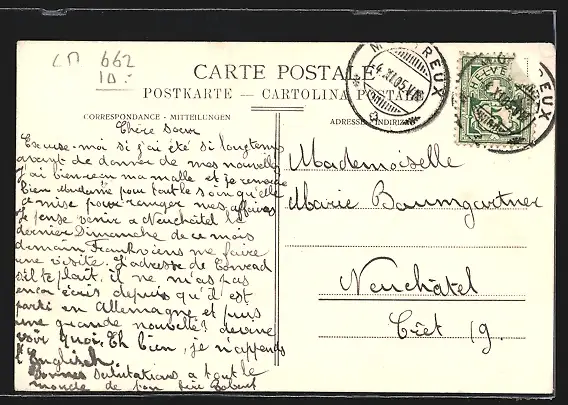 662
10.-
CARTE POSTALE
POSTKARTE — CARTOLINA POSTALE
CORRESPONDANCE - MITTEILUNGEN
Chère soeur
Excuse-moi si j'ai été si longtemps
avant de donner de mes nouvelles
J'ai bien reçu ma malle et je remercie
bien Madame pour tout le soin qu'elle
a mise pour ranger mes affaires
Je pense venir a Neuchâtel le
dernier Dimanche de ce mois
demain Frank viens me faire
une visite. L'adresse de Conrad
s'il te plait, il ne m'as pas
encor écris depuis qu'il est
parti en Allemagne et puis
une grande nouvelle? devine
voir quoi. Eh bien, je n'apprends
l'Englisch.
Bonnes salutations a tout le
monde de ton frère Robert
Mademoiselle
Marie Baumgartner
Neuchâtel
Crêt 19.
HELVETIA
MONTREUX